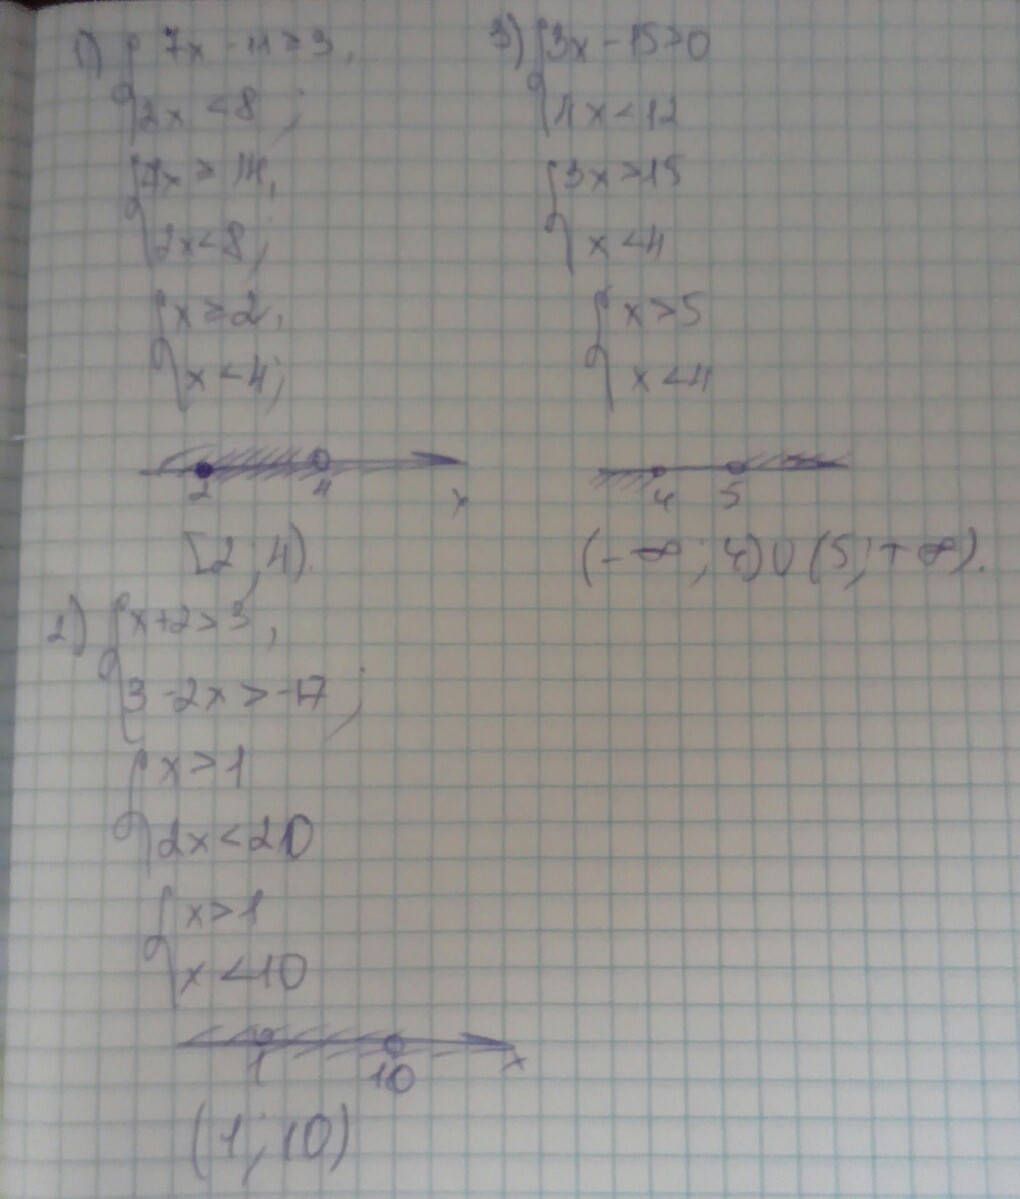 1) { 7x - 11 ≥ 3,
2x < 8 ;
{ 7x ≥ 14,
2x < 8 ;
{ x ≥ 2,
x < 4 ;
2 4 x
[2 ; 4)
2) { x+2 > 3 ,
3 - 2x > -17 ;
{ x > 1
2x < 20
{ x > 1
x < 10
1 10 x
(1 ; 10)
3) { 3x - 15 > 0
4x < 12
{ 3x > 15
x < 4
{ x > 5
x < 4
4 5
(-∞ ; 4) ∪ (5 ; +∞).